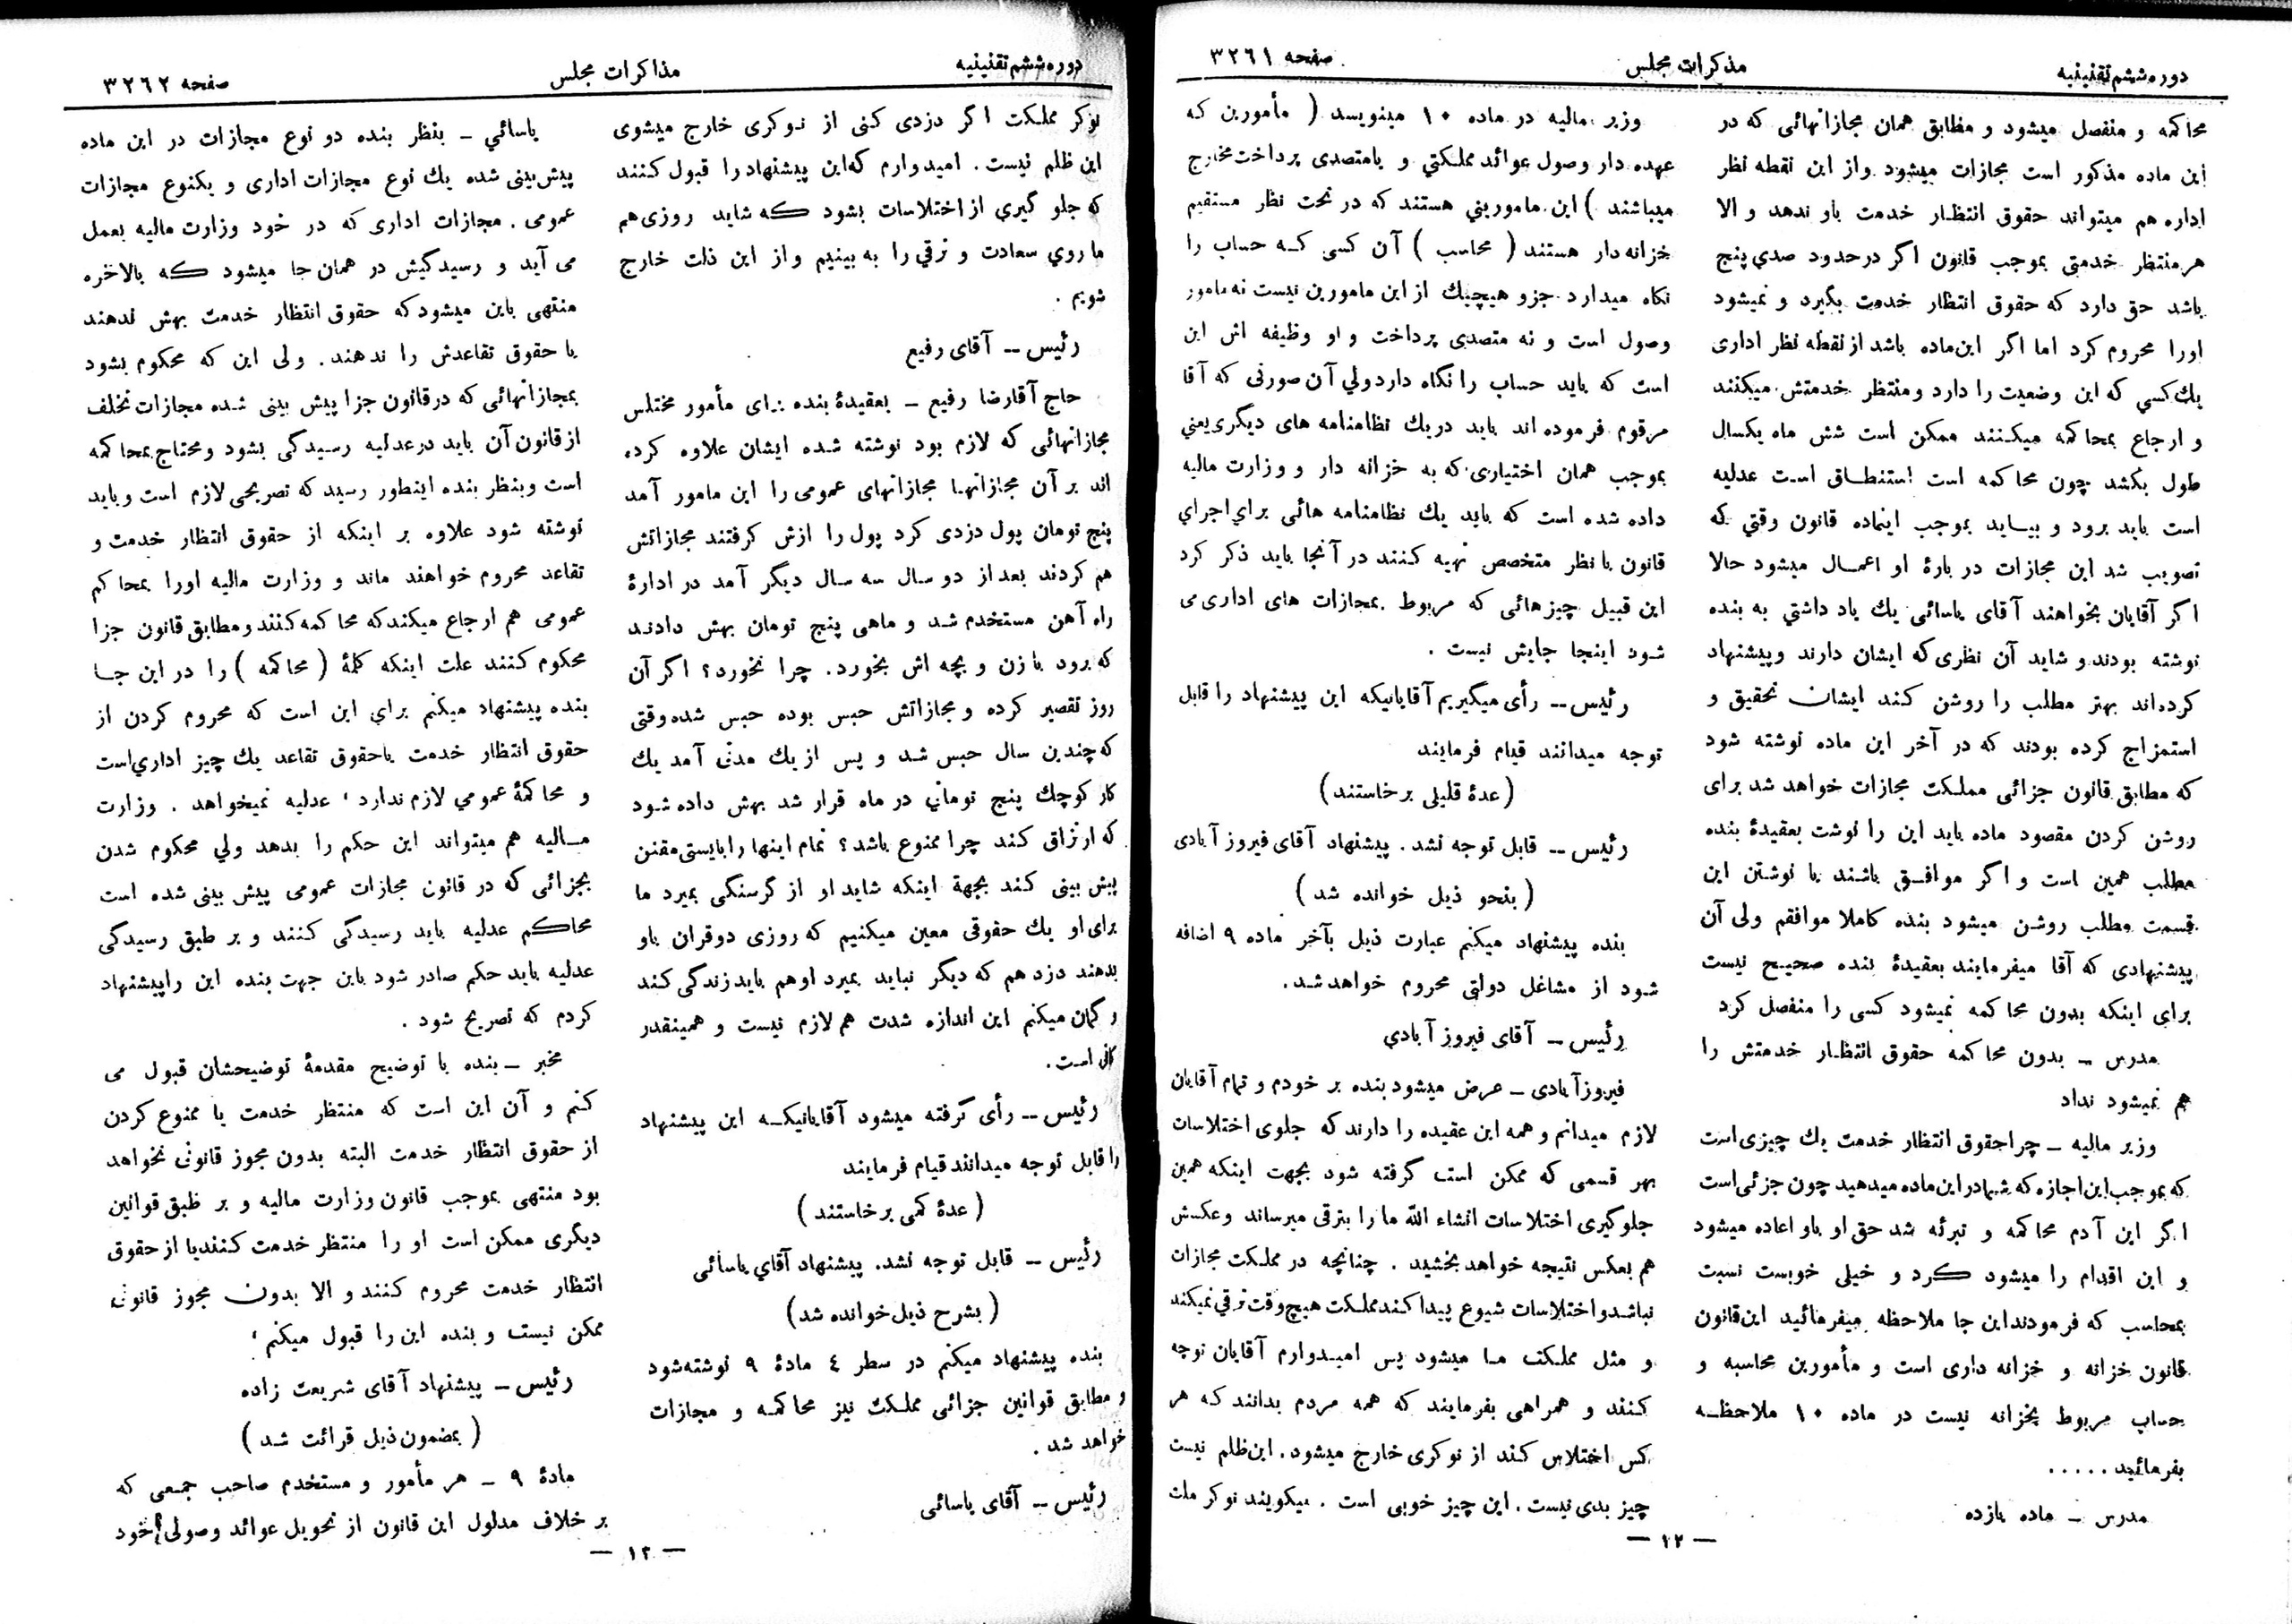 دوره ششم تقنینیه
مذکرات مجلس
صفحه ۳۲۶۱
محاکمه و منفصل میشود و مطابق همان مجازاتهائی که در
این ماده مذکور است مجازات میشود واز این نقطه نظر
اداره هم میتواند حقوق انتظار خدمت باو ندهد و الا
هرمنتظر خدمتی بموجب قانون اگر درحدود صدی پنج
باشد حق دارد که حقوق انتظار خدمت بگیرد و نمیشود
اورا محروم کرد اما اگر این ماده باشد از نقطه نظر اداری
یك کسی که این وضعیت را دارد ومنتظر خدمتش میکنند
و ارجاع بمحاکمه میکنند ممکن است شش ماه یکسال
طول بکشد چون محاکمه است استنطاق است عدلیه
است باید برود و بیاید بموجب اینماده قانون وقتی که
تصویب شد این مجازات در بارهٔ او اعمال میشود حالا
اگر آقایان بخواهند آقای یاسائی یك یاد داشتی به بنده
نوشته بودند و شاید آن نظری که ایشان دارند وپیشنهاد
کرده‌اند بهتر مطلب را روشن کند ایشان تحقیق و
استمزاج کرده بودند که در آخر این ماده نوشته شود
که مطابق قانون جزائی مملکت مجازات خواهد شد برای
روشن کردن مقصود ماده باید این را نوشت بعقیدهٔ بنده
مطلب همین است و اگر موافق باشند با نوشتن این
قسمت مطلب روشن میشود بنده کاملا موافقم ولی آن
پیشنهادی که آقا میفرمایند بعقیدهٔ بنده صحیح نیست
برای اینکه بدون محاکمه نمیشود کسی را منفصل کرد
مدرس ــ بدون محاکمه حقوق انتظار خدمتش را
هم نمیشود نداد
وزیر مالیه ــ چرا حقوق انتظار خدمت یك چیزی است
که بموجب این اجازه که شما در این ماده میدهید چون جزئی است
اگر این آدم محاکمه و تبرئه شد حق او باو اعاده میشود
و این اقدام را میشود کرد و خیلی خوبست نسبت
بمحاسب که فرمودند این جا ملاحظه میفرمائید این قانون
قانون خزانه و خزانه داری است و مأمورین محاسبه و
حساب مربوط بخزانه نیست در ماده ۱۰ ملاحظه
بفرمائید .....
مدرس ــ ماده یازده
وزیر مالیه در ماده ۱۰ مینویسد ( مأمورین که
عهده دار وصول عوائد مملکتی و یامتصدی پرداخت مخارج
میباشند ) این مامورینی هستند که در تحت نظر مستقیم
خزانه دار هستند ( محاسب ) آن کسی که حساب را
نگاه میدارد جزو هیچیك از این مامورین نیست نه مامور
وصول است و نه متصدی پرداخت و او وظیفه اش این
است که باید حساب را نگاه دارد ولی آن صورتی که آقا
مرقوم فرموده اند باید دریك نظامنامه های دیگری یعنی
بموجب همان اختیاری که به خزانه دار و وزارت مالیه
داده شده است که باید یك نظامنامه هائی برای اجرای
قانون با نظر متخصص تهیه کنند در آنجا باید ذکر کرد
این قبیل چیز هائی که مربوط بمجازات های اداری می
شود اینجا جایش نیست .
رئیس ــ رأی میگیریم آقایانیکه این پیشنهاد را قابل
توجه میدانند قیام فرمایند
(عدهٔ قلیلی برخاستند)
رئیس ــ قابل توجه نشد . پیشنهاد آقای فیروز آبادی
( بنحو ذیل خوانده شد )
بنده پیشنهاد میکنم عبارت ذیل بآخر ماده ۹ اضافه
شود از مشاغل دولتی محروم خواهد شد.
رئیس ــ آقای فیروز آبادی
فیروزآبادی ــ عرض میشود بنده بر خودم و تمام آقایان
لازم میدانم و همه این عقیده را دارند که جلوی اختلاسات
بهر قسمی که ممکن است گرفته شود بجهت اینکه همین
جلوگیری اختلاسات انشاء الله ما را بترقی میرساند وعکسش
هم بعکس نتیجه خواهد بخشید . چنانچه در مملکت مجازات
نباشد و اختلاسات شیوع پیدا کند مملکت هیچ وقت ترقی نمیکند
و مثل مملکت ما میشود پس امیدوارم آقایان توجه
کنند و همراهی بفرمایند که همه مردم بدانند که هر
کس اختلاس کند از نوکری خارج میشود. این ظلم نیست
چیز بدی نیست . این چیز خوبی است . میگویند نوکر ملت
— ۱۲ —
دوره ششم تقنینیه
مذاکرات مجلس
صفحه ۳۲۶۲
نوکر مملکت اگر دزدی کنی از نوکری خارج میشوی
این ظلم نیست. امیدوارم که این پیشنهاد را قبول کنند
که جلو گیری از اختلاسات بشود که شاید روزی هم
ما روی سعادت و ترقی را به بینیم و از این ذلت خارج
شویم .
رئیس ــ آقای رفیع
حاج آقارضا رفیع ــ بعقیدهٔ بنده برای مأمور مختلس
مجازاتهائی که لازم بود نوشته شده ایشان علاوه کرده
اند بر آن مجازاتها مجازاتهای عمومی را این مامور آمد
پنج تومان پول دزدی کرد پول را ازش گرفتند مجازاتش
هم کردند بعد از دو سال سه سال دیگر آمد در ادارهٔ
راه آهن مستخدم شد و ماهی پنج تومان بهش دادند
که برود با زن و بچه اش بخورد. چرا نخورد؟ اگر آن
روز تقصیر کرده و مجازاتش حبس بوده حبس شده وقتی
که چندین سال حبس شد و پس از یك مدتی آمد یك
کار کوچك پنج تومانی در ماه قرار شد بهش داده شود
که ارتزاق کند چرا ممنوع باشد؟ تمام اینها را بایستی مقنن
پیش بینی کند بجهة اینکه شاید او از گرسنگی بمیرد ما
برای او یك حقوقی معین میکنیم که روزی دوقران باو
بدهند دزد هم که دیگر نباید بمیرد او هم باید زندگی کند
و گمان میکنم این اندازه شدت هم لازم نیست و همینقدر
کافی است.
رئیس ــ رأی گرفته میشود آقایانیکه این پیشنهاد
را قابل توجه میدانند قیام فرمایند
(عدهٔ کمی برخاستند)
رئیس ــ قابل توجه نشد. پیشنهاد آقای یاسائی
(بشرح ذیل خوانده شد)
بنده پیشنهاد میکنم در سطر ٤ مادهٔ ۹ نوشته شود
و مطابق قوانین جزائی مملکت نیز محاکمه و مجازات
خواهد شد .
رئیس ــ آقای یاسائی
یاسائی ــ بنظر بنده دو نوع مجازات در این ماده
پیش بینی شده یك نوع مجازات اداری و یکنوع مجازات
عمومی . مجازات اداری که در خود وزارت مالیه بعمل
می آید و رسیدگیش در همان جا میشود که بالاخره
منتهی باین میشود که حقوق انتظار خدمت بهش ندهند
یا حقوق تقاعدش را ندهند. ولی این که محکوم بشود
بمجازاتهائی که در قانون جزا پیش بینی شده مجازات تخلف
از قانون آن باید در عدلیه رسیدگی بشود و محتاج بمحاکمه
است وبنظر بنده اینطور رسید که تصریحی لازم است وباید
نوشته شود علاوه بر اینکه از حقوق انتظار خدمت و
تقاعد محروم خواهند ماند و وزارت مالیه اورا بمحاکم
عمومی هم ارجاع میکند که محاکمه کنند و مطابق قانون جزا
محکوم کنند علت اینکه کلمهٔ ( محاکمه ) را در این جا
بنده پیشنهاد میکنم برای این است که محروم کردن از
حقوق انتظار خدمت یاحقوق تقاعد یك چیز اداری است
و محاکمهٔ عمومی لازم ندارد ، عدلیه نمیخواهد . وزارت
مالیه هم میتواند این حکم را بدهد ولی محکوم شدن
بجزائی که در قانون مجازات عمومی پیش بینی شده است
محاکم عدلیه باید رسیدگی کنند و بر طبق رسیدگی
عدلیه باید حکم صادر شود باین جهت بنده این را پیشنهاد
کردم که تصریح شود .
مخبر ــ بنده با توضیح مقدمهٔ توضیحشان قبول می
کنم و آن این است که منتظر خدمت یا ممنوع کردن
از حقوق انتظار خدمت البته بدون مجوز قانونی نخواهد
بود منتهی بموجب قانون وزارت مالیه و بر طبق قوانین
دیگری ممکن است او را منتظر خدمت کنند یا از حقوق
انتظار خدمت محروم کنند و الا بدون مجوز قانونی
ممکن نیست و بنده این را قبول میکنم ،
رئیس ــ پیشنهاد آقای شریعت زاده
(بمضمون ذیل قرائت شد)
مادهٔ ۹ ــ هر مأمور و مستخدم صاحب جمعی که
بر خلاف مدلول این قانون از تحویل عوائد وصولی خود
— ۱۳ —